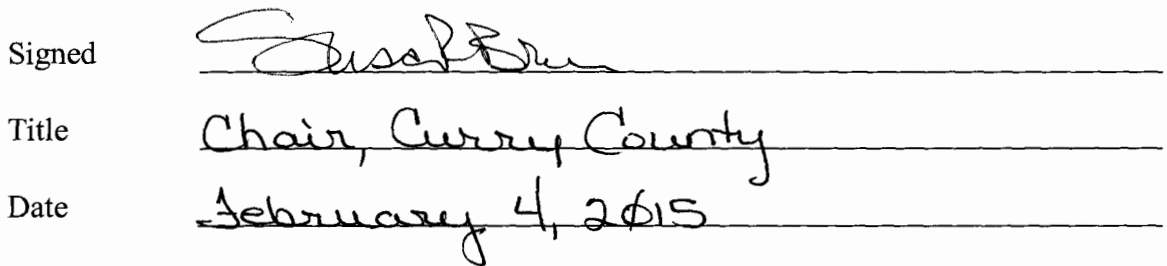 Signed Susan Brown
Title Chair, Curry County
Date February 4, 2015